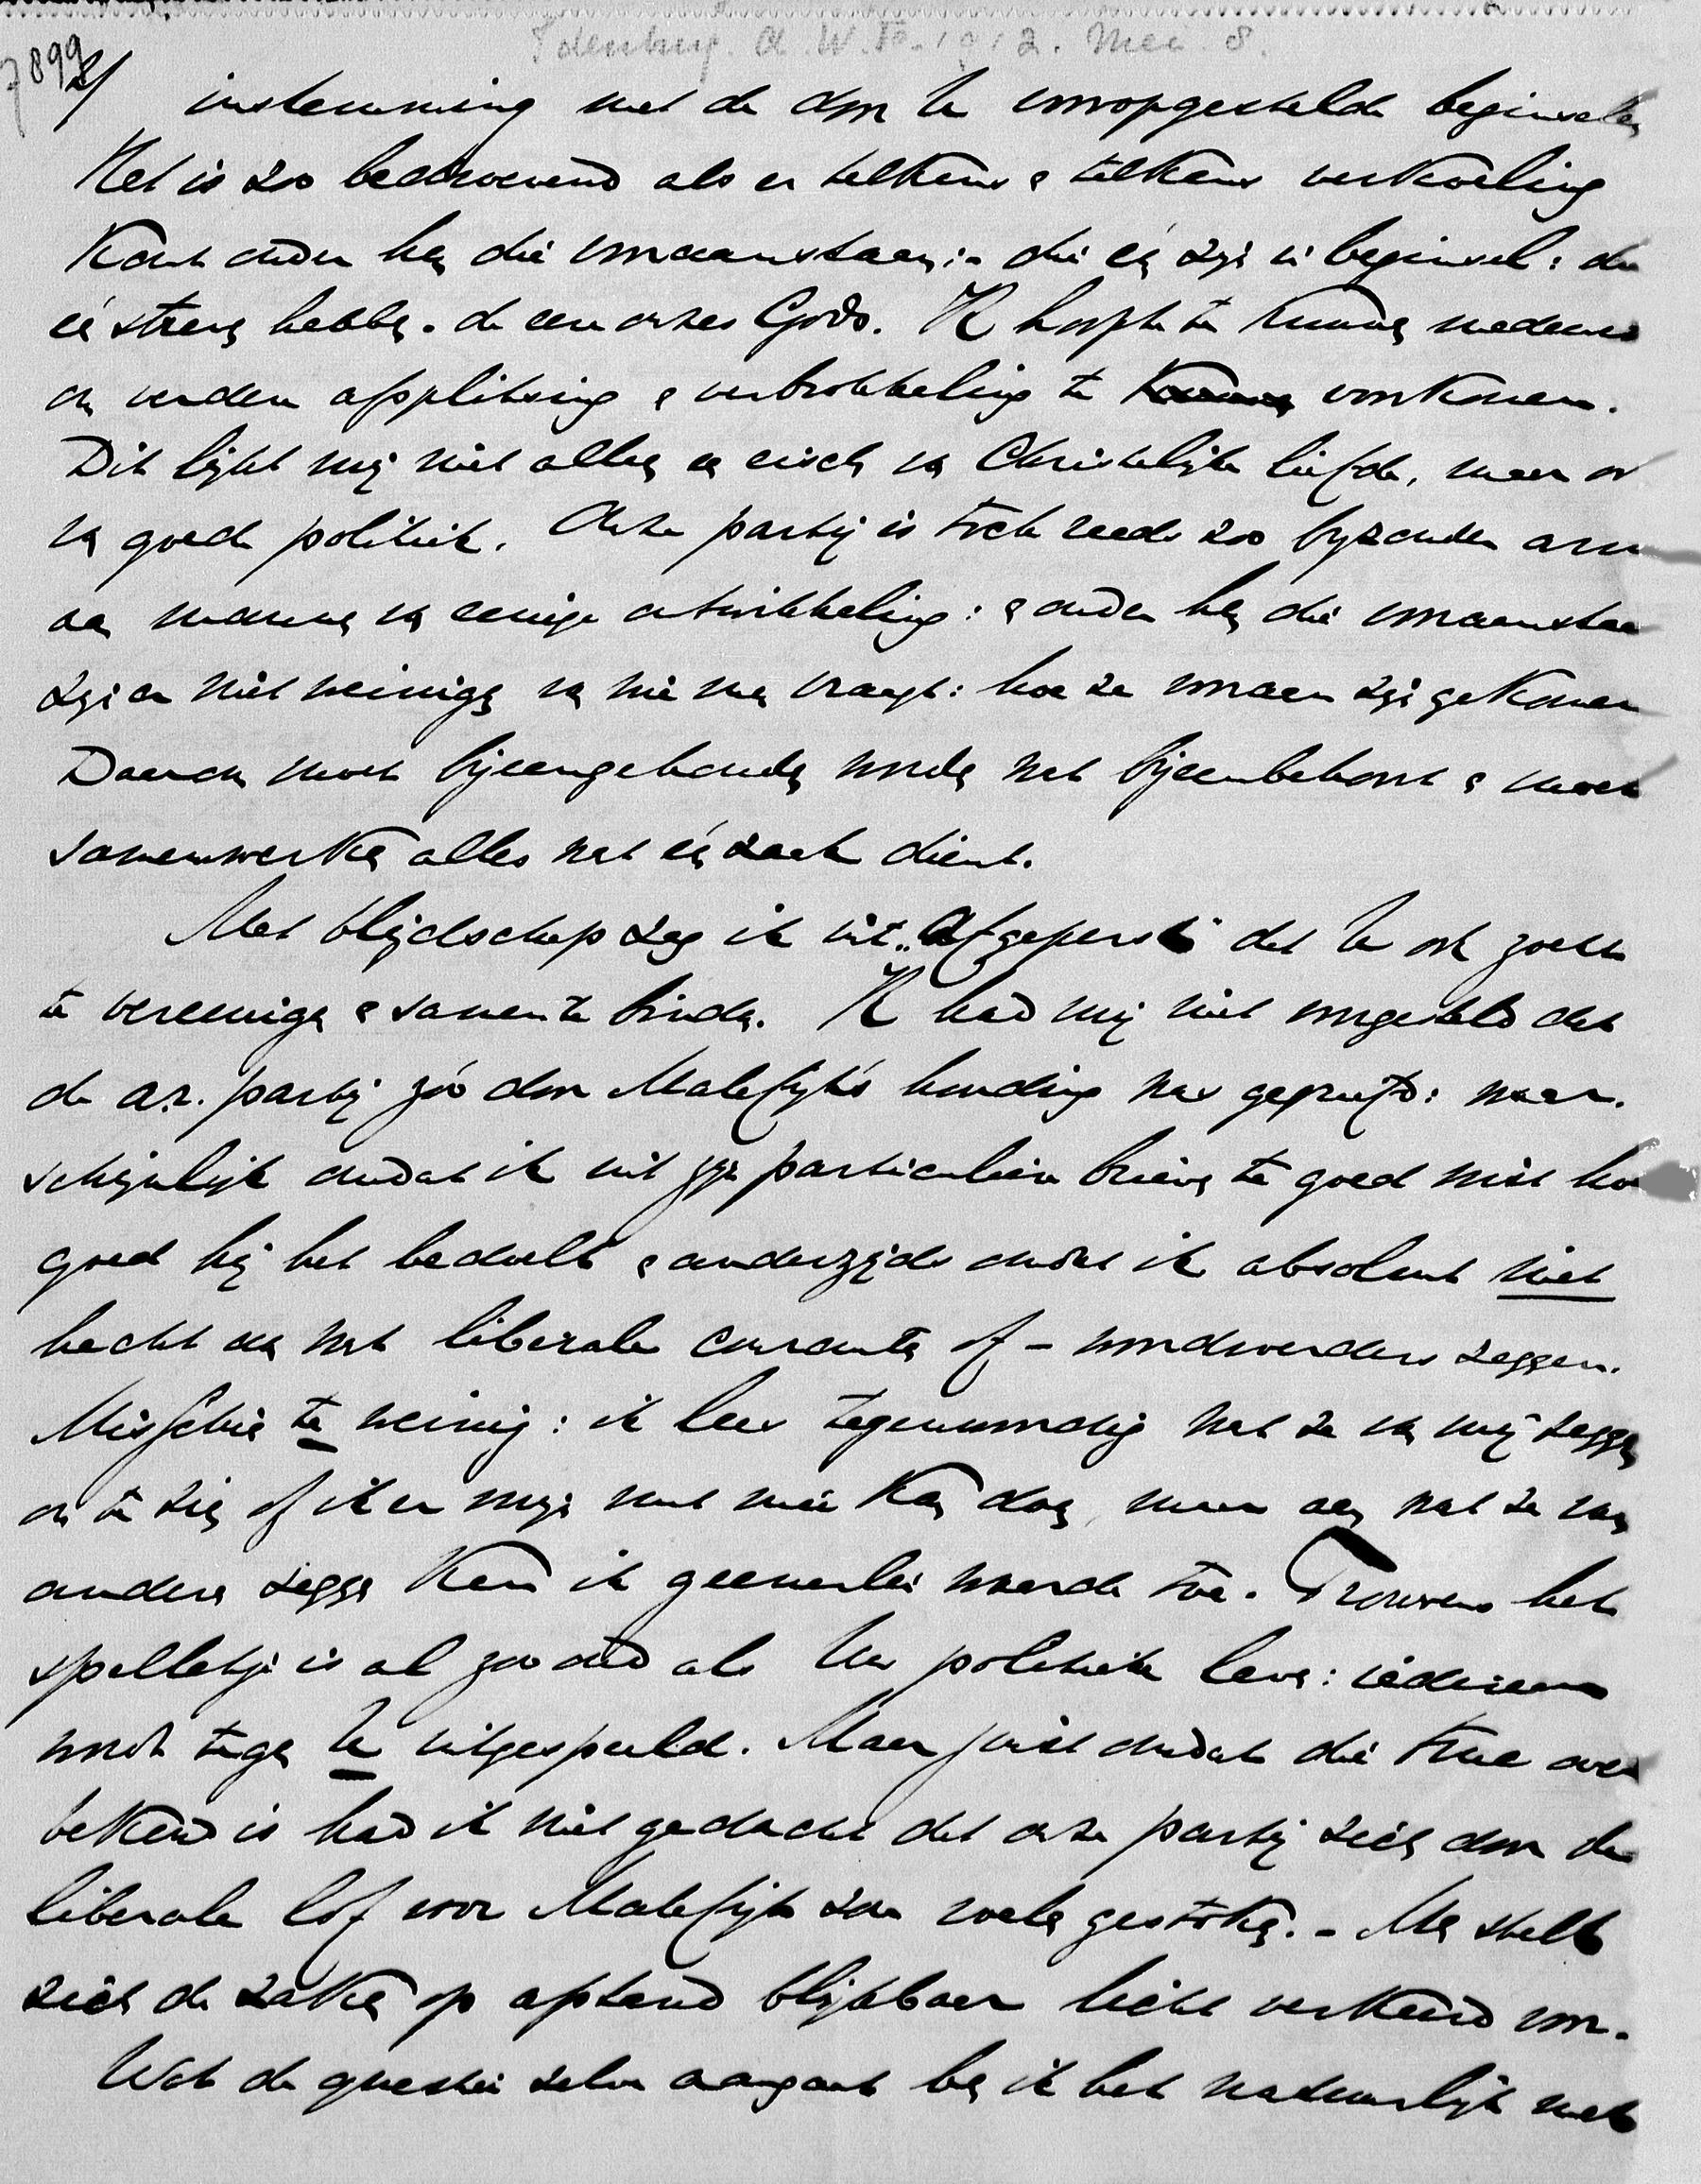 Idenburg. A. W. F. 1912. Mei. 8.
7899
2/ instemming met de door U vooropgestelde beginselen
Het is zoo bedroevend als er telkens & telkens verkoeling
komt onder hen die vooraanstaan; - die één zijn in beginsel: die
één streng hebben. de eere onzes Gods. Ik hoopte te kunnen medewer
om verdere afsplitsing & verbrokkeling te voorkomen.
Dit lijkt mij niet alleen een eisch van Christelijke liefde, maar ook
van goede politiek. Onze partij is toch reeds zoo byzonder arm
aan mannen van eenige ontwikkeling: & onder hen die vooraanstaan
zijn er niet weinigen van wie men vraagt: hoe ze vooraan zijn gekomen
Daarom moet bijeengehouden worden wat bijeenbehoort & moet
samenwerken alles wat één zaak dient.
Met blijdschap zag ik uit "Afgeperst" dat U ook zoekt
te vereenigen & samen te binden. Ik had mij niet voorgesteld dat
de a.r. partij zóó door Malefijt's houding was gegriefd: waar-
schijnlijk omdat ik uit zijn particuliere brieven te goed wist hoe
goed hij het bedoelt & anderzijds omdat ik absoluut niet
hecht aan wat liberale couranten of - woordvoerders zeggen.
Misschien te weinig: ik lees tegenwoordig wat ze van mij zeggen
om te zien of ik er mijn nut mee kan doen, maar aan wat ze van
anderen zeggen ken ik geenerlei waarde toe. Trouwens het
spelletje is al zoo oud als Uw politieke leven: iedereen
wordt tegen U uitgespeeld. Maar juist omdat die truc over
bekend is had ik niet gedacht dat onze partij zich door de
liberale lof voor Malefijt zou voelen gestoken. - Men stelt
zich de zaken op afstand blijkbaar licht verkeerd voor.
Wat de questie zelve aangaat ben ik het natuurlijk met